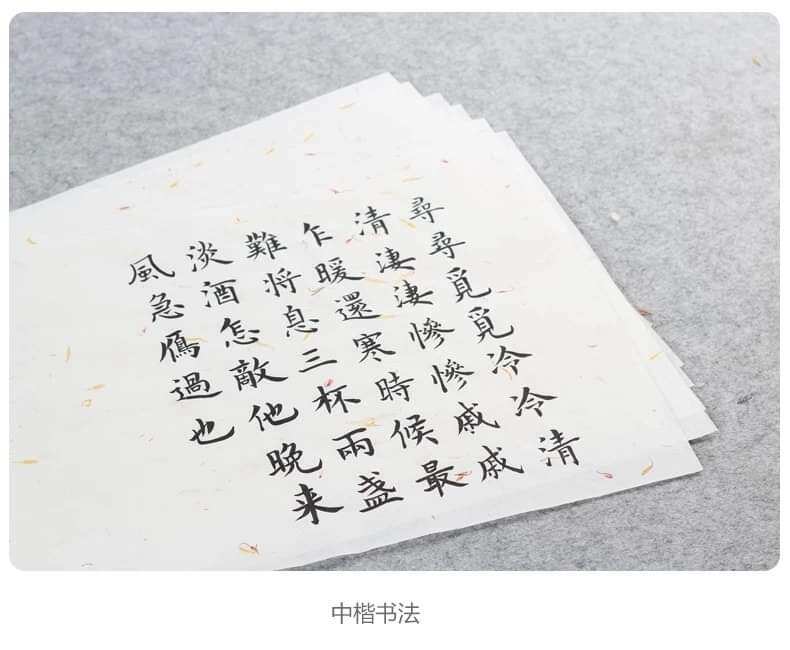 尋尋覓覓冷冷清
清淒淒慘慘戚戚
乍暖還寒時候最
難将息三杯兩盞
淡酒怎敵他晚来
風急鴈過也
中楷书法